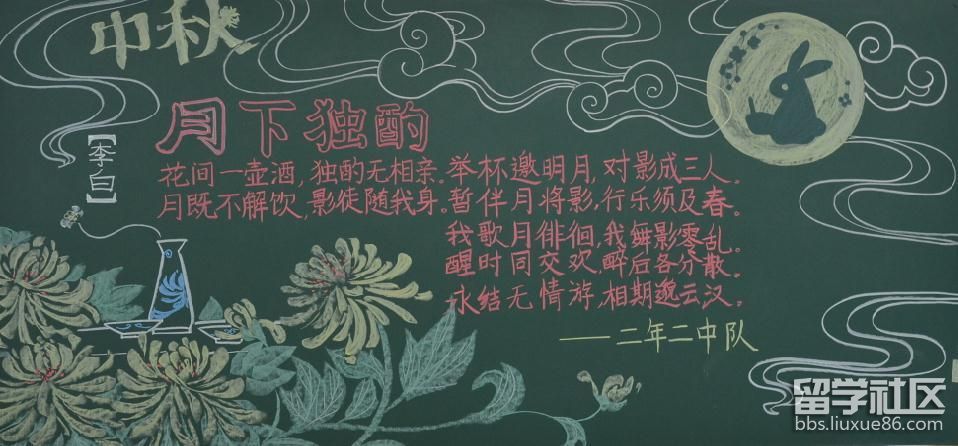 中秋
月下独酌
【李白】
花间一壶酒，独酌无相亲。举杯邀明月，对影成三人。
月既不解饮，影徒随我身。暂伴月将影，行乐须及春。
我歌月徘徊，我舞影零乱。
醒时同交欢，醉后各分散。
永结无情游，相期邈云汉。
——二年二中队
留学社区
bbs.liuxue86.com